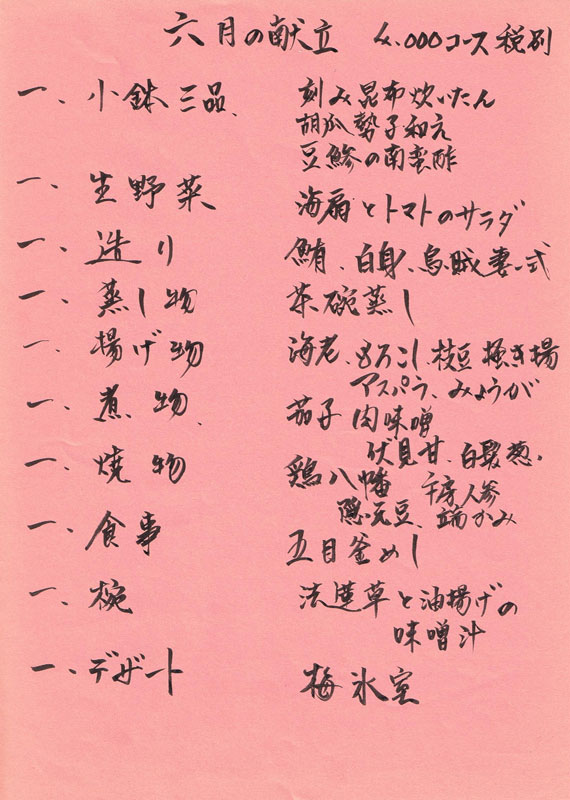 六月の献立 4.000コース税別
一、小鉢三品、 刻み昆布炊いたん
胡瓜 勢子和え
豆鯵の南蛮酢
一、生野菜 海扇とトマトのサラダ
一、造り 鮪、白身、烏賊 妻一式
一、蒸し物 茶碗蒸し
一、揚げ物 海老、もろこし、枝豆 掻き揚
アスパラ、みょうが
一、煮物、 茄子 肉味噌
伏見甘、白髪葱、
一、焼物 鶏八幡
隠元豆、
一、食事 五目釜めし
一、椀 法蓮草と油揚げの
味噌汁
一、デザート 梅氷室